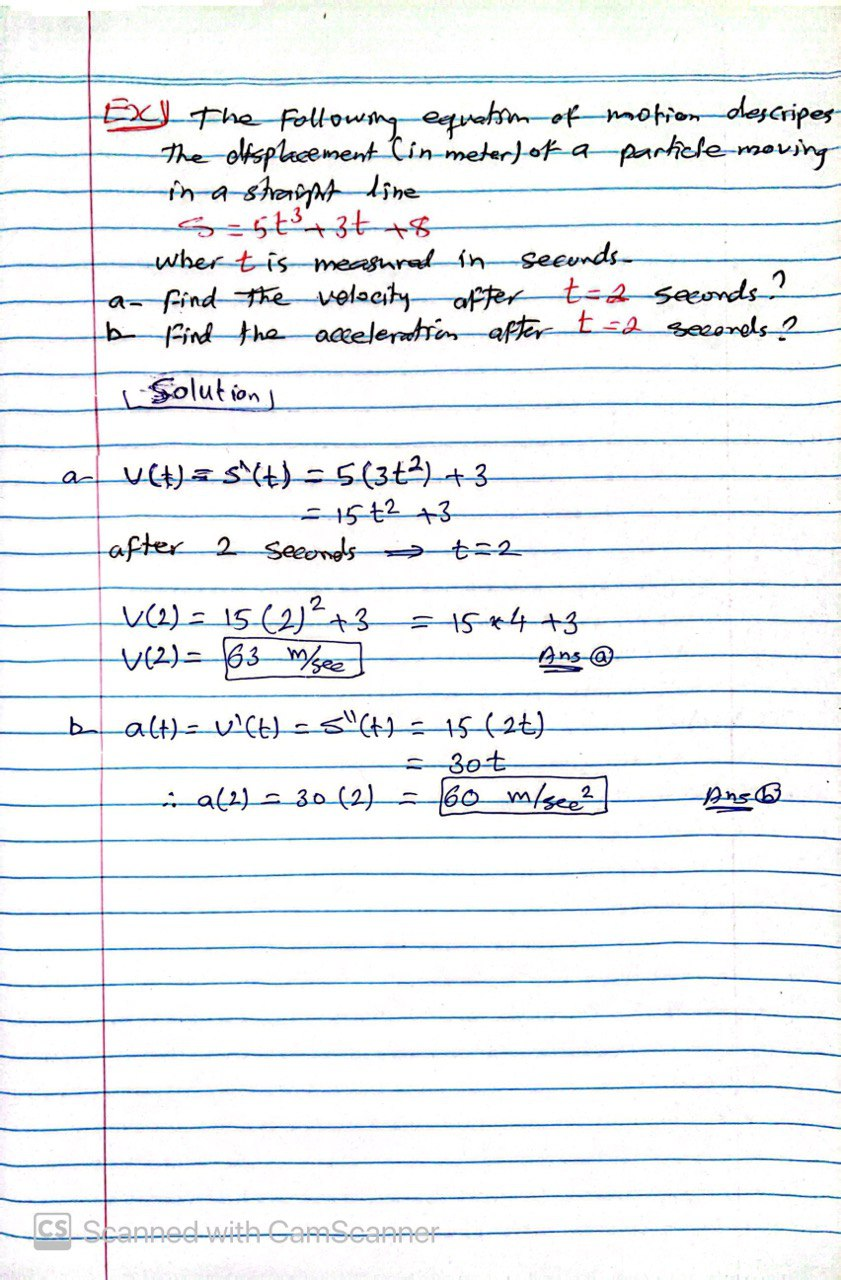 Ex1) The Following equation of motion descripes
the displacement (in meter) of a particle moving
in a straight line
S = 5t³ + 3t + 8
wher t is measured in seconds-
a- find the velocity after t=2 seconds?
b- find the acceleration after t=2 seconds?
Solution
a- V(t) = S'(t) = 5(3t²) + 3
= 15t² + 3
after 2 seconds ⇒ t=2
V(2) = 15(2)² + 3 = 15*4 + 3
V(2) = 63 m/sec Ans a
b- a(t) = v'(t) = S''(t) = 15(2t)
= 30t
∴ a(2) = 30(2) = 60 m/sec² Ans b
CS Scanned with CamScanner